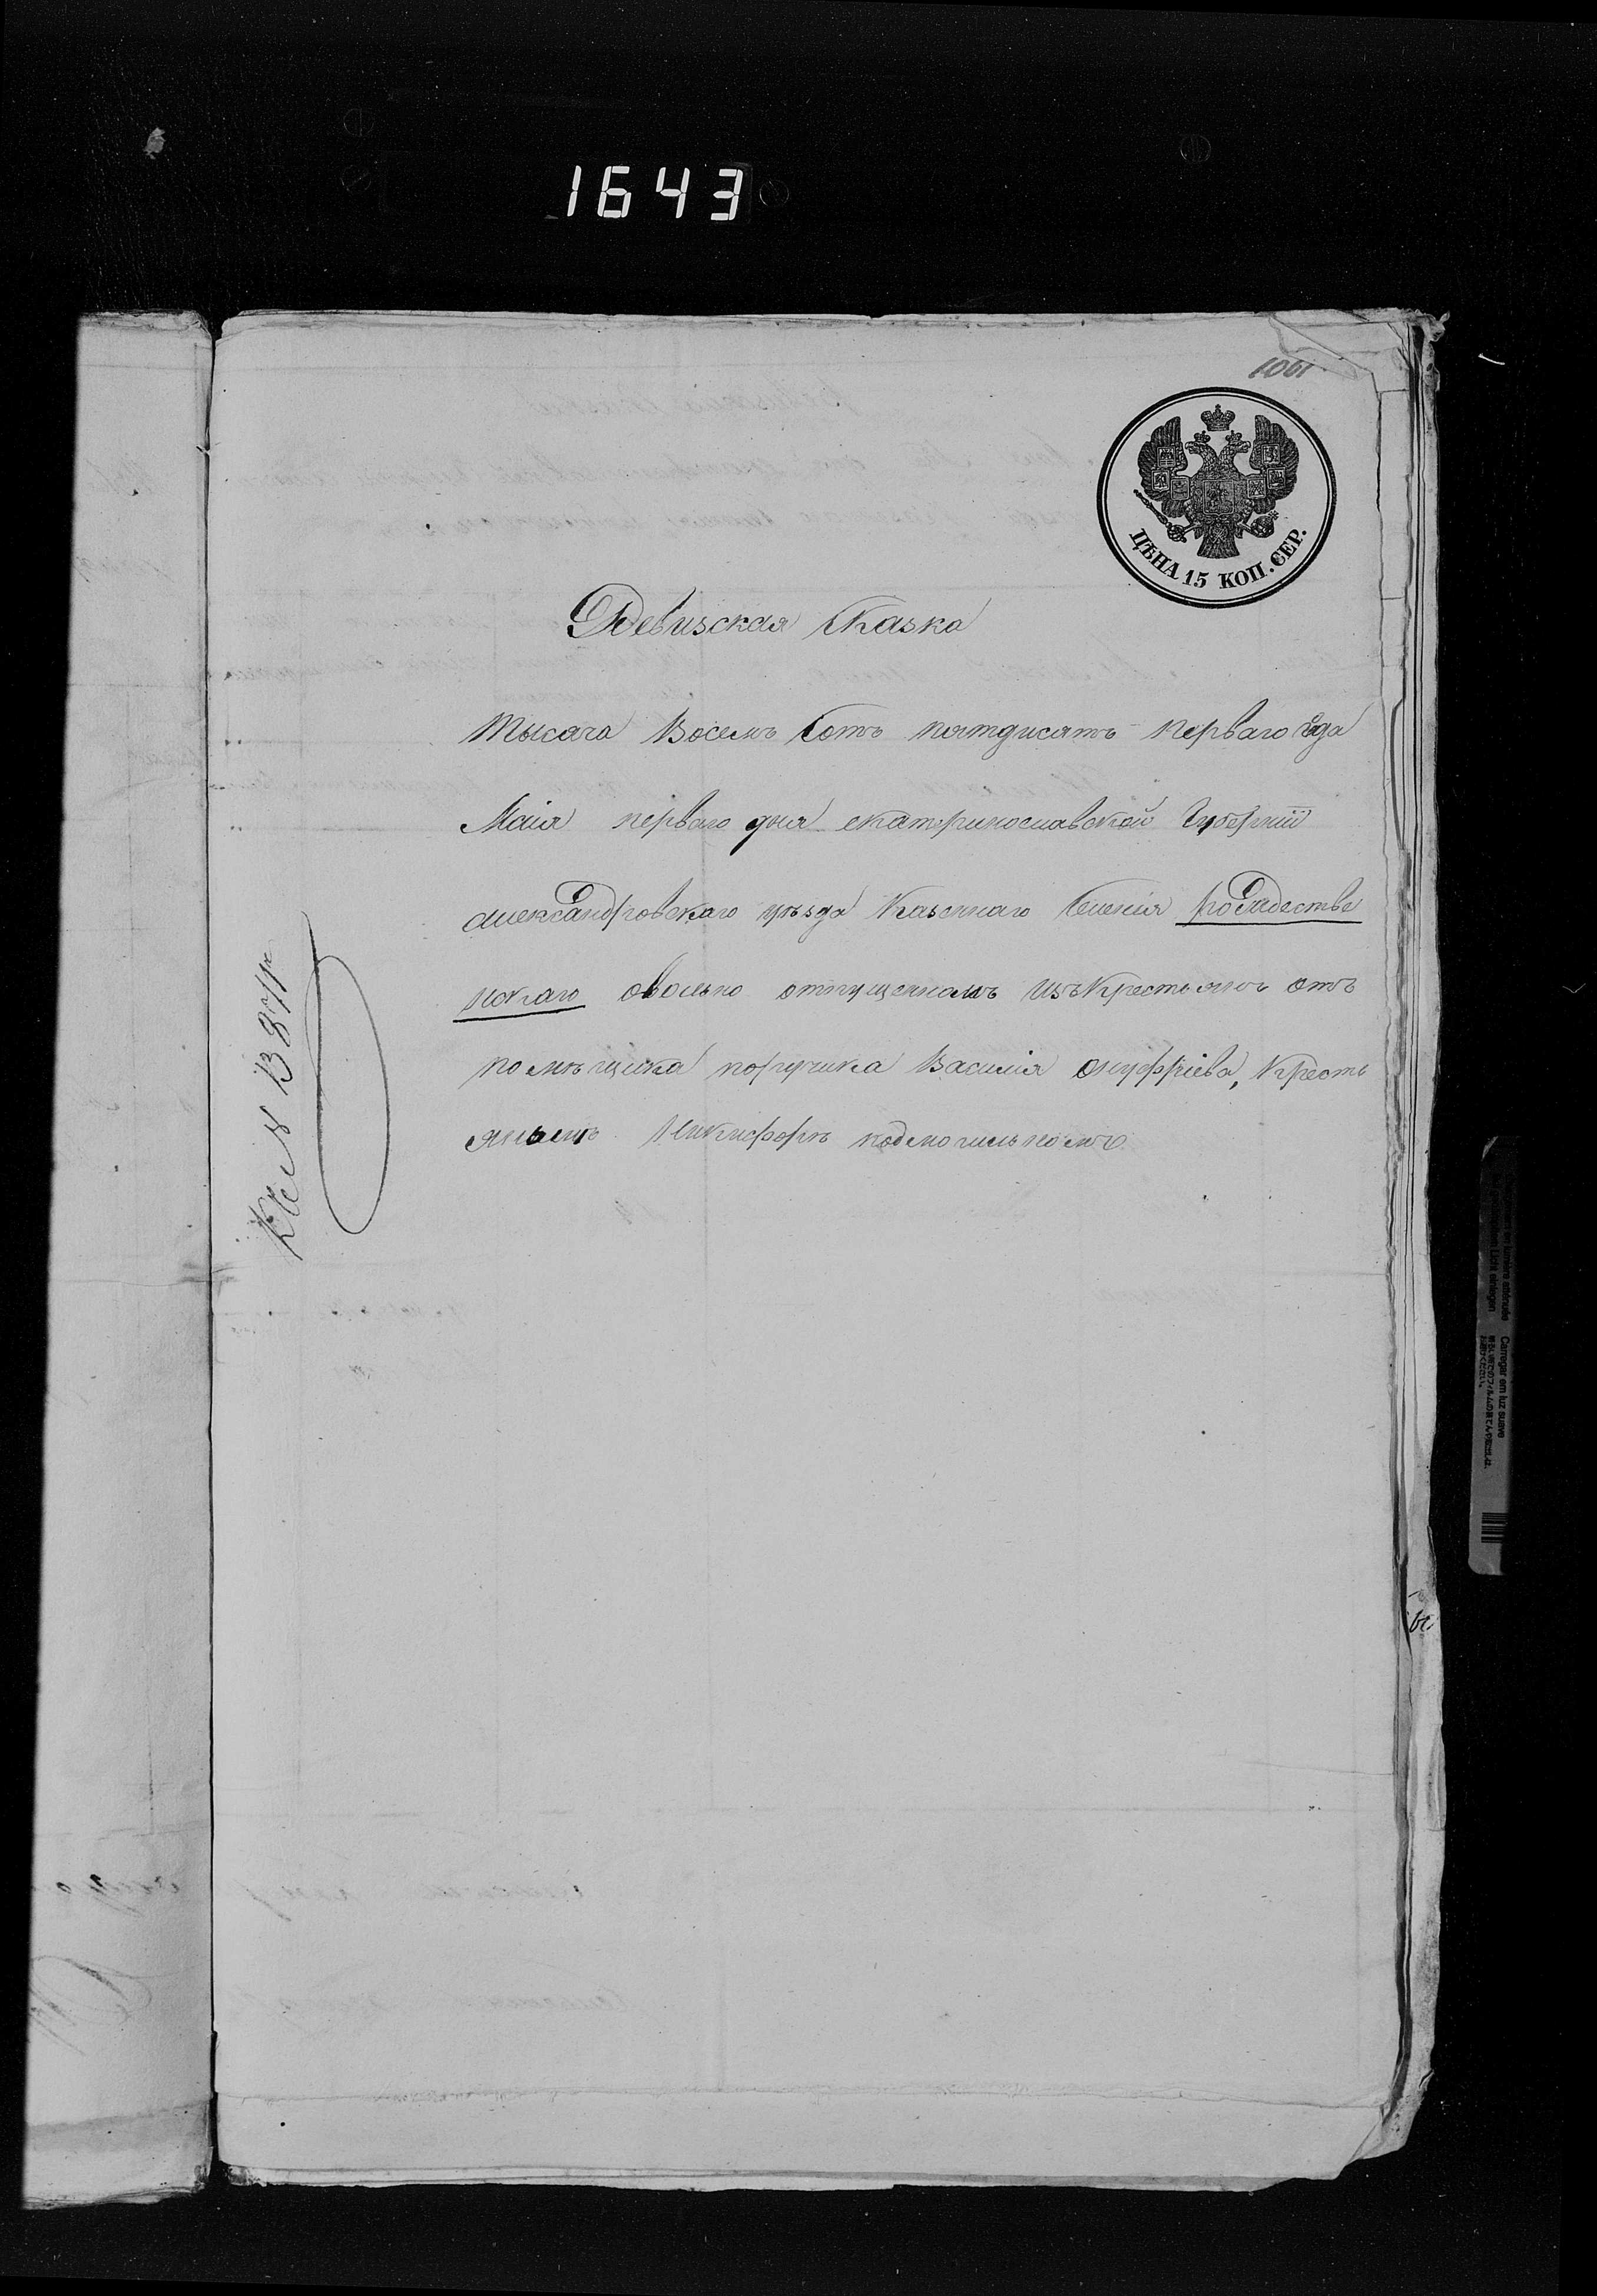 1643
1061
ЦѢНА 15 КОП. СЕР.
Ревизская Сказка
Тысяча Восемъ Сотъ пятдисятъ перваго года
Маія перваго дня екатиринославской Губерніи
александровскаго уѣзда Казеннаго Селенія рождестве
нскаго овольно отпущенномъ изъ Крестьянъ отъ
помѣщика поручика Василія Онуфріева, Кресть
яниномъ Никифорѣ подмогильномъ
К № 1387